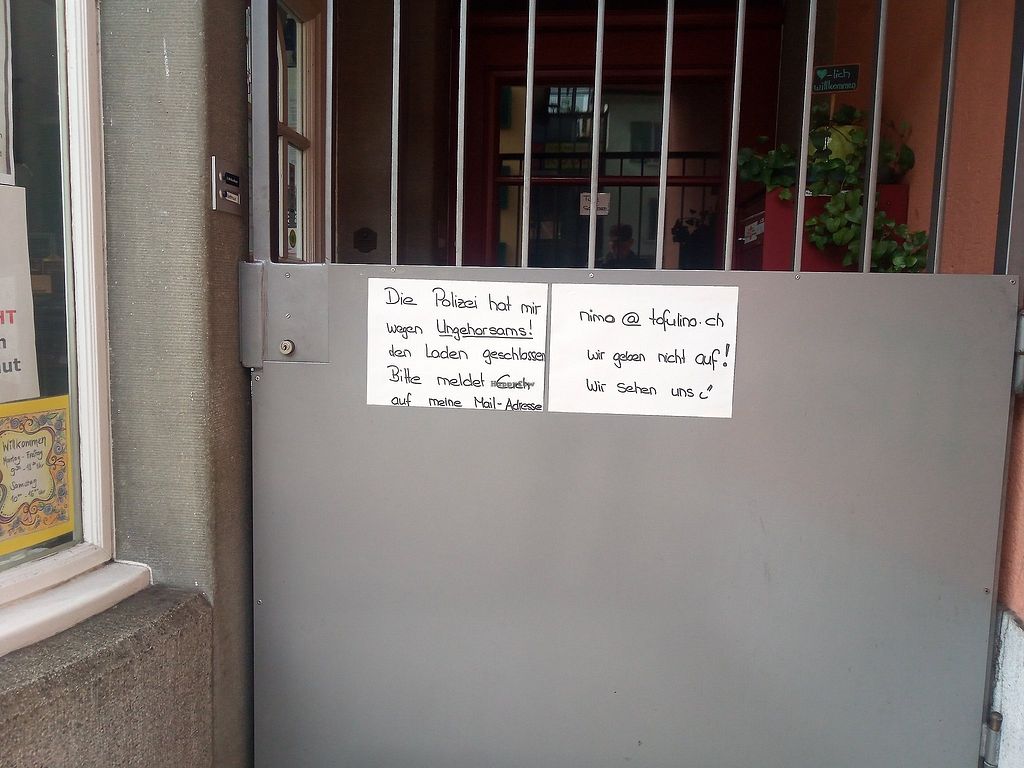 Die Polizei hat mir
wegen Ungehorsams!
den Laden geschlossen
Bitte meldet Euch
auf meine Mail-Adresse
nima @ tofulino.ch
wir geben nicht auf!
Wir sehen uns
-lich
willkommen
HT
n
aut
Willkommen
Montag - Freitag
Samstag